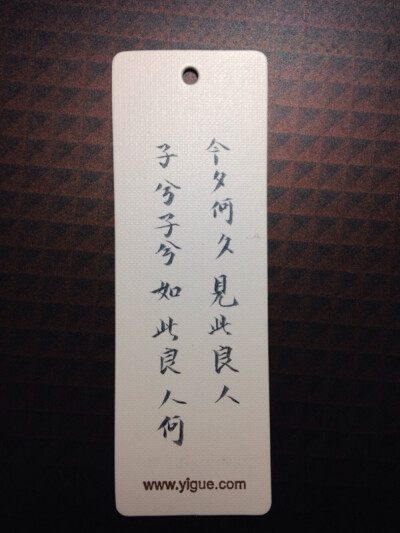 今夕何久見此良人
子兮子兮如此良人何
www.yigue.com